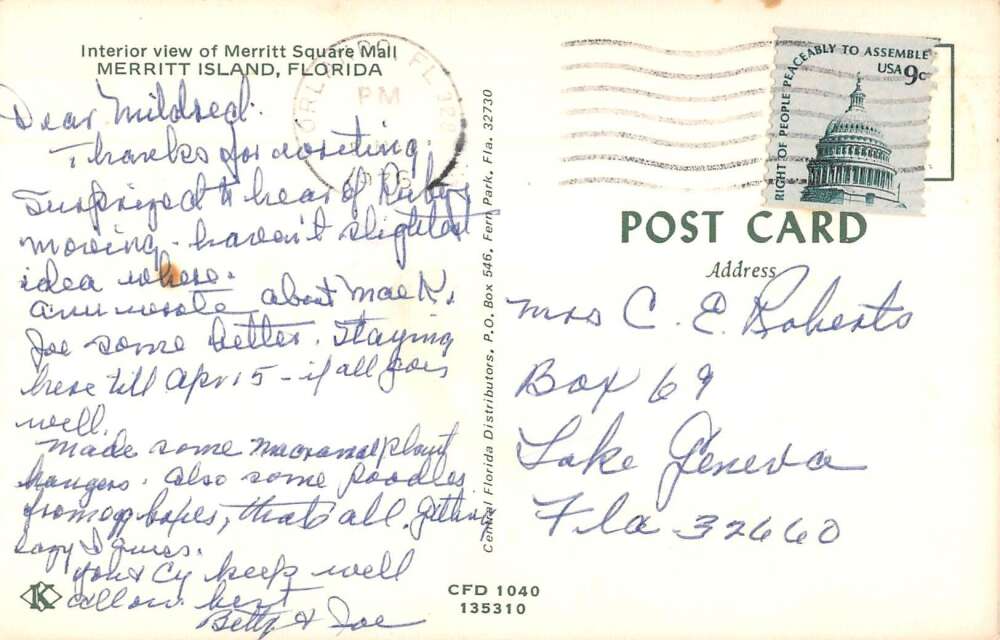 Interior view of Merritt Square Mall
MERRITT ISLAND, FLORIDA
Dear Mildred.
Thanks for writing.
Surprized to hear of Rubys
moving - haven't slightest
idea where.
Ann wrote about Mae N.
Joe some better. Staying
here till Apr 15 - if all goes
well.
Made some macrame plant
hangers. Also some Poodles
from egg boxes, that's all. Getting
lazy I guess.
You & Cy keep well
All our best
Betty & Joe
K
CFD 1040
135310
Central Florida Distributors, P.O. Box 546, Fern Park, Fla. 32730
ORLANDO, FL 328
PM
RIGHT OF PEOPLE PEACEABLY TO ASSEMBLE
USA 9c
POST CARD
Address
Mrs C. E. Roberts
Box 69
Lake Geneva
Fla 32660